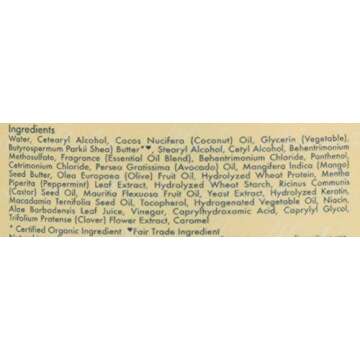 Ingredients
Water, Cetearyl Alcohol, Cacos Nucifera (Coconut) Oil, Glycerin (Vegetable),
Butyrospermum Parkii Shea) Butter*♥, Stearyl Alcohol, Cetyl Alcohol, Behentrimonium
Methosulfate, Fragrance (Essential Oil Blend), Behentrimonium Chloride, Panthenol,
Cetrimonium Chloride, Persea Gratissima (Avocado) Oil, Mangifera Indica (Mango)
Seed Butter, Olea Europaea (Olive) Fruit Oil, Hydrolyzed Wheat Protein, Mentha
Piperita (Peppermint) Leaf Extract, Hydrolyzed Wheat Starch, Ricinus Communis
(Castor) Seed Oil, Mauritia Flexuosa Fruit Oil, Hydrolyzed Keratin,
Macadamia Ternifolia Seed Oil, Tocopherol, Hydrogenated Vegetable Oil, Niacin,
Aloe Barbadensis Leaf Juice, Vinegar, Caprylhydroxamic Acid, Caprylyl Glycol,
Trifolium Pratense (Clover) Flower Extract, Caramel
* Certified Organic Ingredient ♥Fair Trade Ingredient